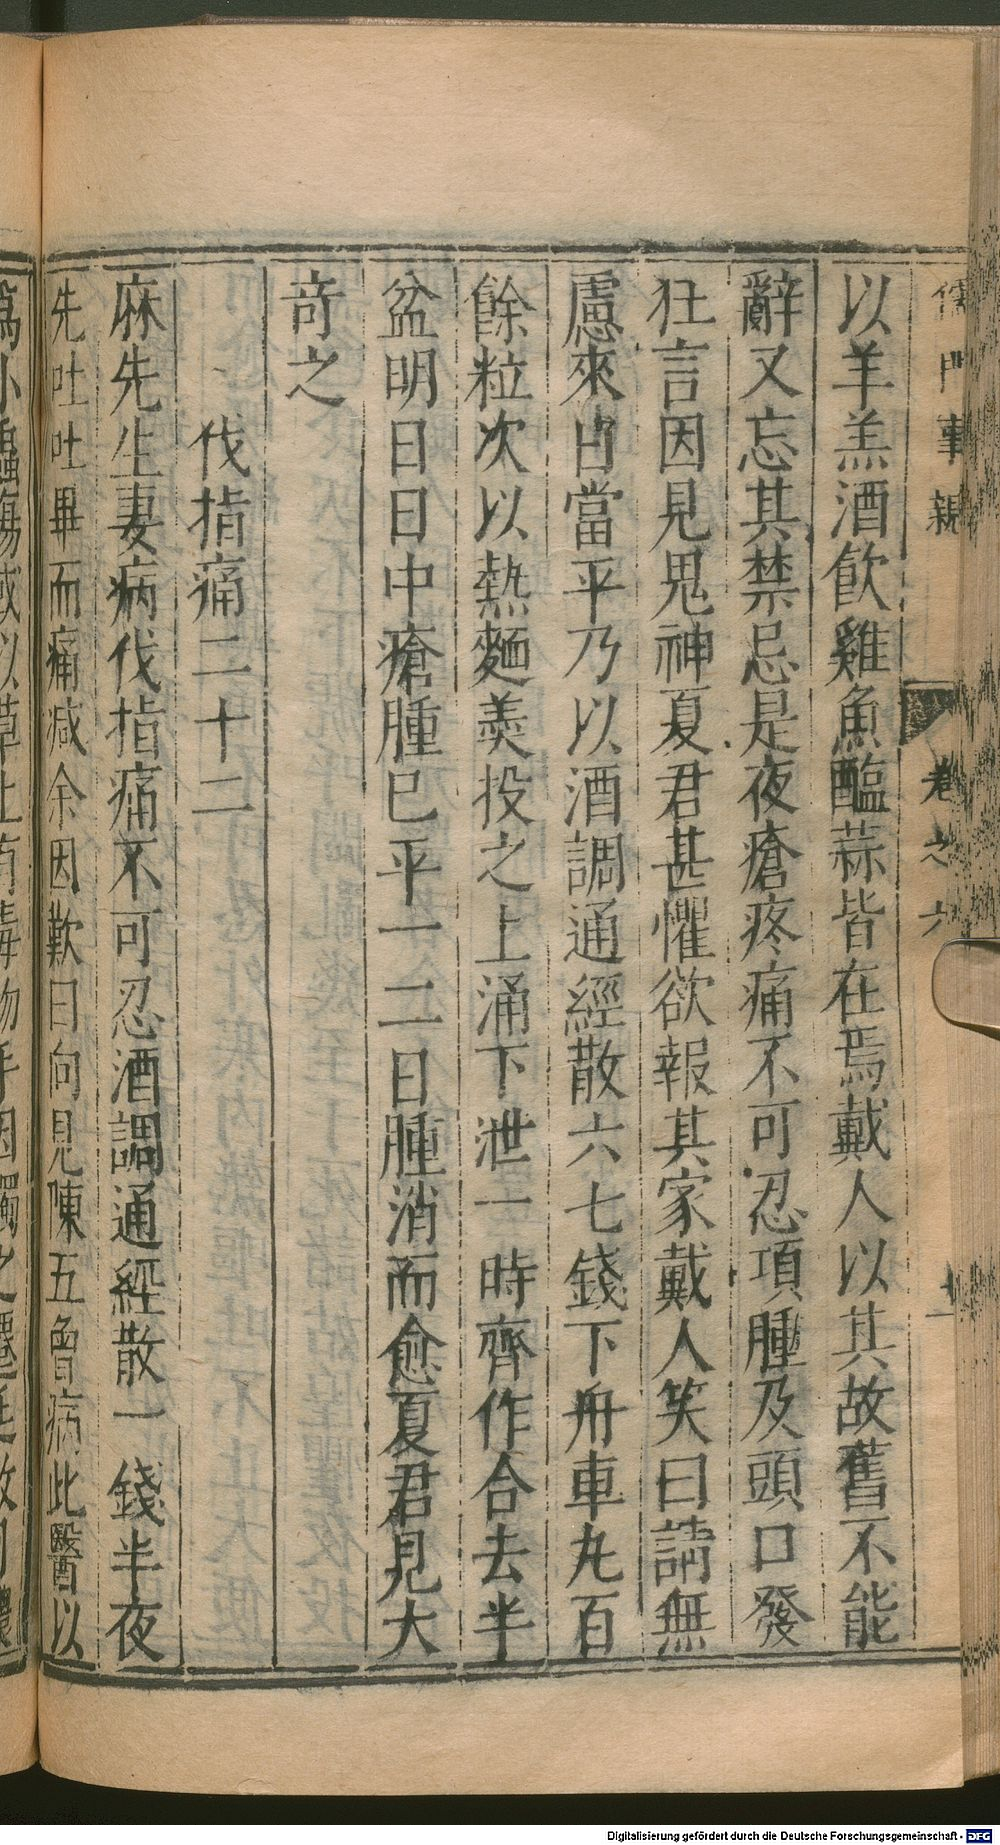 儒門事親 卷之六 十一
以羊羔酒飲雞魚醢蒜皆在焉戴人以其故舊不能
辭又忘其禁忌是夜瘡疼痛不可忍項腫及頭口發
狂言因見鬼神夏君甚懼欲報其家戴人笑曰請無
慮來日當平乃以酒調通經散六七錢下舟車丸百
餘粒次以熱麵羹投之上涌下泄一時齊作合去半
盆明日日中瘡腫已平一二日腫消而愈夏君見大
竒之
伐指痛二十二
麻先生妻病伐指痛不可忍酒調通經散一錢半夜
先吐吐畢而痛减余因歎曰向見陳五曾病此醫以
Digitalisierung gefördert durch die Deutsche Forschungsgemeinschaft - DFG